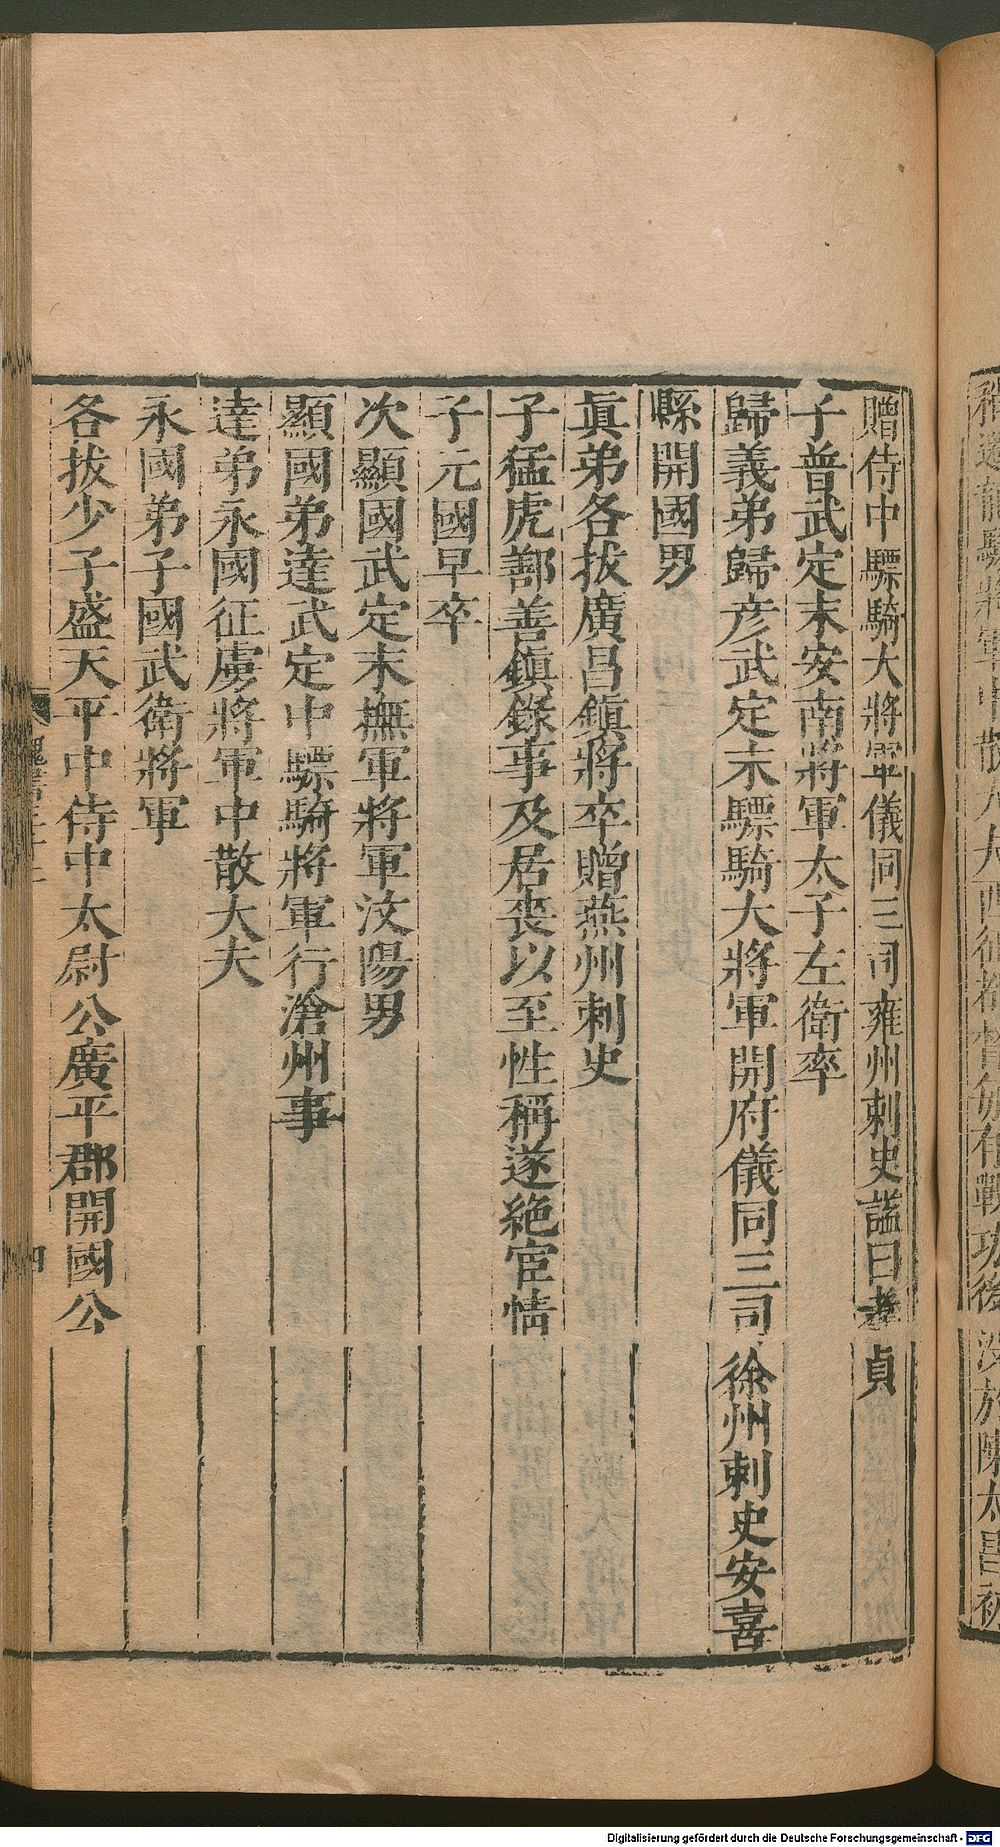 稍遷龍驤將軍中散大夫西征都督每有戰功後沒於陳太昌初
贈侍中驃騎大將軍儀同三司雍州刺史謚曰孝貞
子普武定末安南將軍太子左衛率
歸義弟歸彥武定末驃騎大將軍開府儀同三司徐州刺史安喜
縣開國男
眞弟各拔廣昌鎮將卒贈燕州刺史
子猛虎鄯善鎮錄事及居喪以至性稱遂絕宦情
子元國早卒
次顯國武定末撫軍將軍汶陽男
顯國弟達武定中驃騎將軍行滄州事
達弟永國征虜將軍中散大夫
永國弟子國武衛將軍
各拔少子盛天平中侍中太尉公廣平郡開國公
魏書三十二
四
Digitalisierung gefördert durch die Deutsche Forschungsgemeinschaft - DFG